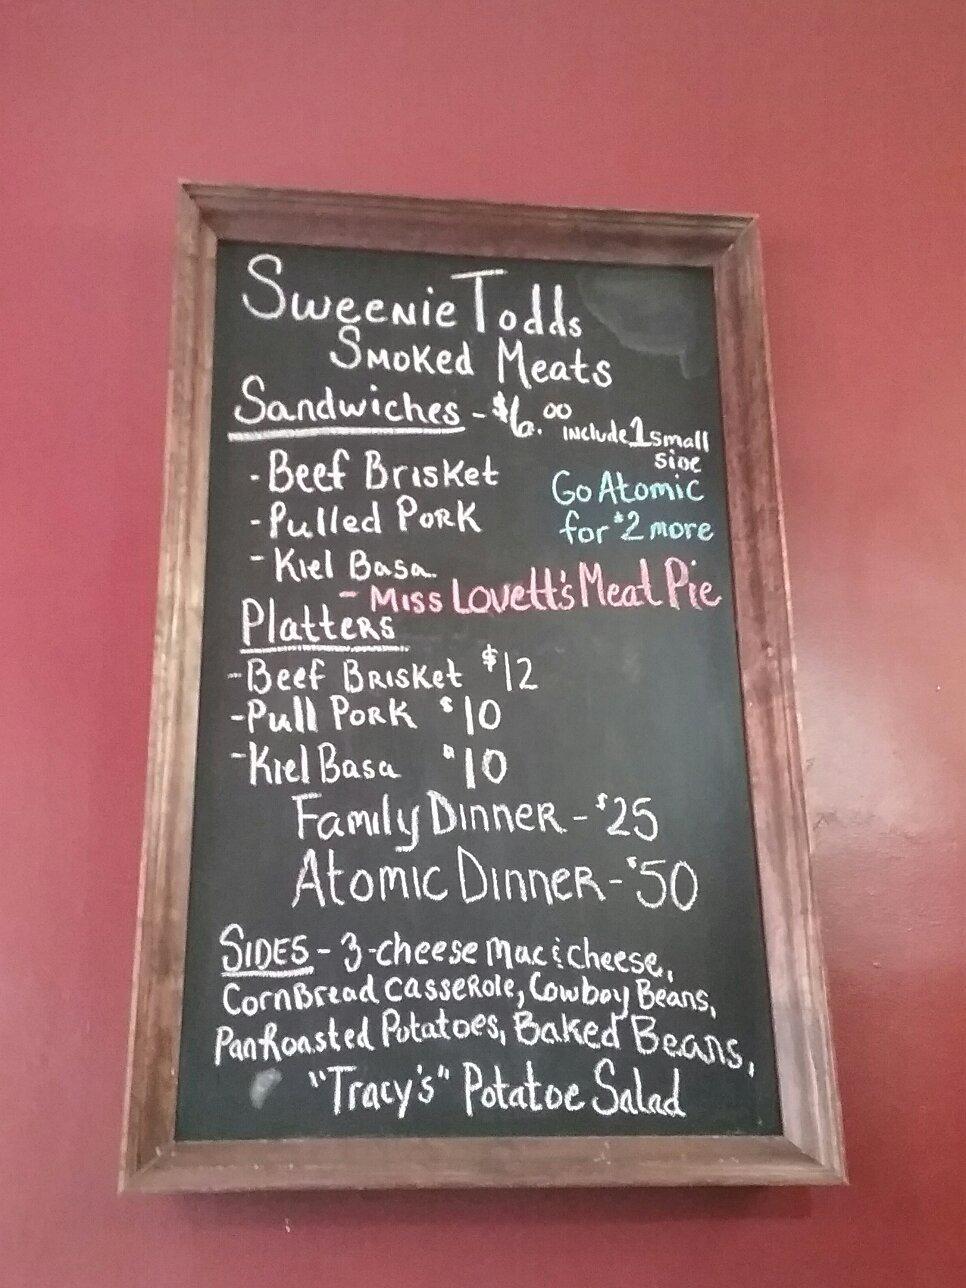 Sweenie Todds
Smoked Meats
Sandwiches - $6.00 include 1 small
side
- Beef Brisket
Go Atomic
- Pulled Pork
for $2 more
- Kiel Basa
- Miss Lovett's Meat Pie
Platters
- Beef Brisket $12
- Pull Pork $10
- Kiel Basa $10
Family Dinner - $25
Atomic Dinner - $50
Sides - 3-cheese Mac & cheese,
CornBread Casserole, Cowboy Beans,
Pan Roasted Potatoes, Baked Beans,
"Tracy's" Potatoe Salad